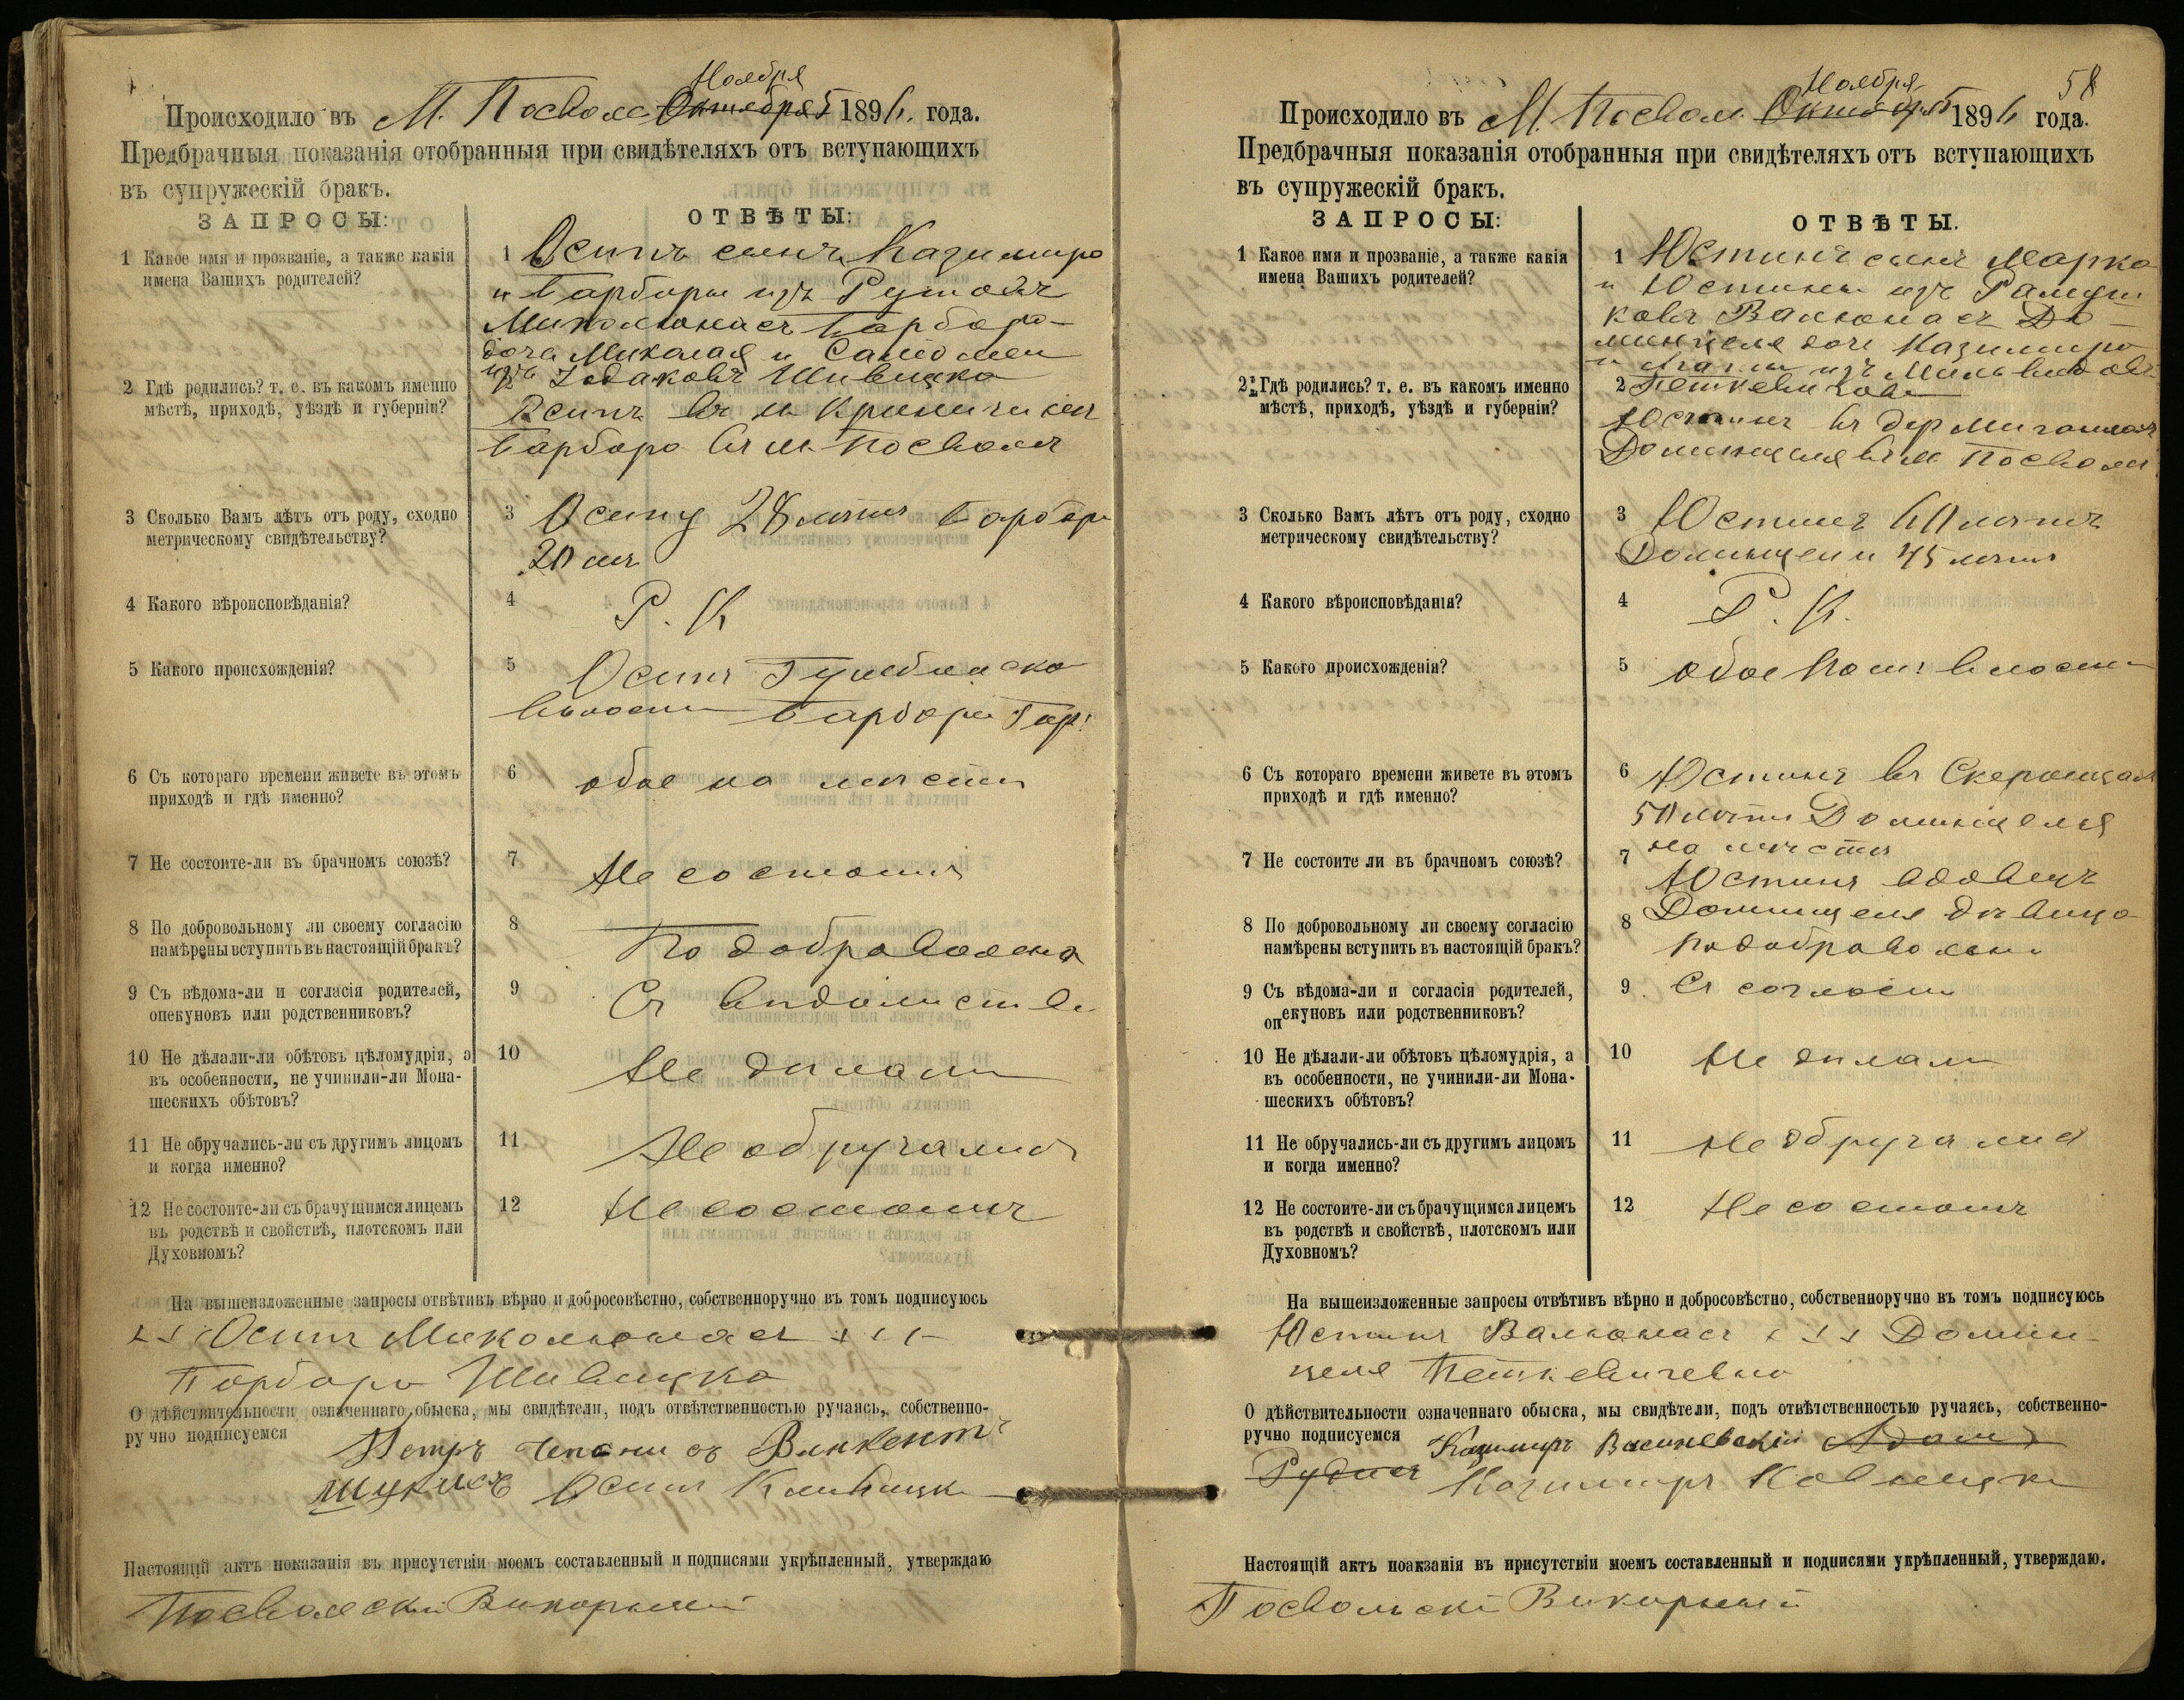 Ноября
Происходило въ М. Посволе Октября 5 1896. года.
Предбрачныя показанія отобранныя при свидѣтеляхъ отъ вступающихъ
въ супружескій бракъ.
ЗАПРОСЫ:
ОТВѢТЫ:
1 Какое имя и прозваніе, а также какія
имена Вашихъ родителей?
1 Осипъ сынъ Казимира
и Барборы изъ
Миколюнасъ Барбара
доча Миколая и Саломеи
изъ Шивицка
2 Гдѣ родились? т. е. въ какомъ именно
мѣстѣ, приходѣ, уѣздѣ и губерніи?
2
Осипъ въ м.
Барбара въ м. Посволѣ
3 Сколько Вамъ лѣтъ отъ роду, сходно
метрическому свидѣтельству?
3 Осипу 28 лѣтъ Барбаре
20 лѣ
4 Какого вѣроисповѣданія?
4 Р. К
5 Какого происхожденія?
5 Осипъ
волости Барбара
6 Съ котораго времени живете въ этомъ
приходѣ и гдѣ именно?
6 обое на мѣсти
7 Не состоите-ли въ брачномъ союзѣ?
7 Не состоитъ
8 По добровольному ли своему согласію
намѣрены вступить въ настоящій бракъ?
8 По добровольна
9 Съ вѣдома-ли и согласія родителей,
опекуновъ или родственниковъ?
9 Съ
10 Не дѣлали-ли обѣтовъ цѣломудрія, а
въ особенности, не учинили-ли Мона-
шескихъ обѣтовъ?
10 Не дѣлали
11 Не обручались-ли съ другимъ лицомъ
и когда именно?
11 Не обручались
12 Не состоите-ли съ брачущимся лицемъ
въ родствѣ и свойствѣ, плотскомъ или
Духовномъ?
12 Не состоитъ
На вышеизложенные запросы отвѣтивъ вѣрно и добросовѣстно, собственноручно въ томъ подписуюсь
Осипъ Миколюнасъ
Барбара Шивицка
О дѣйствительности означеннаго обыска, мы свидѣтели, подъ отвѣтственностью ручаясь, собственно-
ручно подписуемся
Петръ Винкентъ
Осипъ
Настоящій актъ показанія въ присутствіи моемъ составленный и подписями укрѣпленный, утверждаю
Посвольскій Викарный
58
Ноября
Происходило въ М. Посвол. Октяб. 5 1896 года.
Предбрачныя показанія отобранныя при свидѣтеляхъ отъ вступающихъ
въ супружескій бракъ.
ЗАПРОСЫ:
ОТВѢТЫ.
1 Какое имя и прозваніе, а также какія
имена Вашихъ родителей?
1 Юстинъ сынъ Марка
и Юстины изъ Рамуш
ковъ Валюнасъ До-
мицеля доч Казимира
и изъ
2 Гдѣ родились? т. е. въ какомъ именно
мѣстѣ, приходѣ, уѣздѣ и губерніи?
2 Петкевичова
Юстинъ въ дер
Домицеля въ м. Посволи
3 Сколько Вамъ лѣтъ отъ роду, сходно
метрическому свидѣтельству?
3 Юстинъ 60 лѣтъ
Домицели 45 лѣтъ
4 Какого вѣроисповѣданія?
4 Р. К.
5 Какого происхожденія?
5 обое Пос. волости
6 Съ котораго времени живете въ этомъ
приходѣ и гдѣ именно?
6 Юстинъ въ
50 лѣтъ Домицеля
на мѣсти
7 Не состоите ли въ брачномъ союзѣ?
7
Юстинъ вдовецъ
Домицеля дѣвица
8 По добровольному ли своему согласію
намѣрены вступить въ настоящій бракъ?
8
Подобровольн
9 Съ вѣдома-ли и согласія родителей,
опекуновъ или родственниковъ?
9. Съ согласія
10 Не дѣлали-ли обѣтовъ цѣломудрія, а
въ особенности, не учинили-ли Мона-
шескихъ обѣтовъ?
10 Не дѣлали
11 Не обручались-ли съ другимъ лицомъ
и когда именно?
11 Не обручались
12 Не состоите-ли съ брачущимся лицемъ
въ родствѣ и свойствѣ, плотскомъ или
Духовномъ?
12 Не состоитъ
На вышеизложенные запросы отвѣтивъ вѣрно и добросовѣстно, собственноручно въ томъ подписуюсь
Юстинъ Валюнасъ Домин-
целя Петкевичевна
О дѣйствительности означеннаго обыска, мы свидѣтели, подъ отвѣтственностью ручаясь, собственно-
ручно подписуемся Казимиръ Василевскій Адамъ
Рудисъ Казимиръ
Настоящій актъ поаказнія въ присутствіи моемъ составленный и подписями укрѣпленный, утверждаю.
Посвольскі Викарный